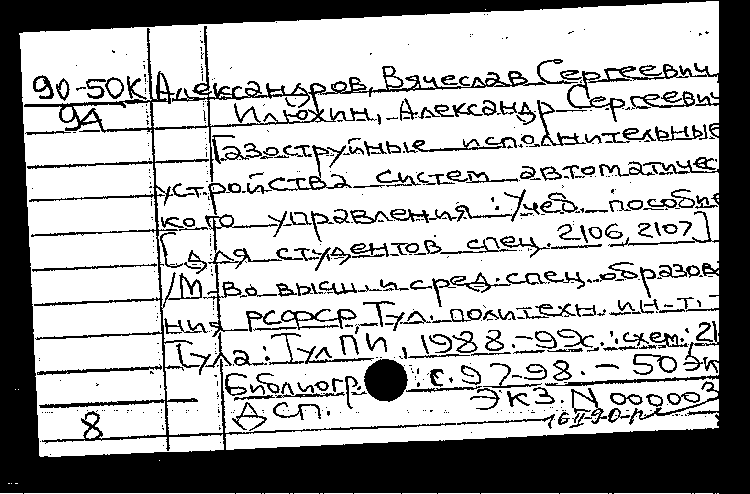 90-50К Александров, Вячеслав Сергеевич,
9А Илюхин, Александр Сергеевич
Газоструйные исполнительные
устройства систем автоматичес
кого управления: Учеб. пособие
[Для студентов спец. 2106, 2107]
/М-во высш. и сред. спец. образова
ния РСФСР Тул. политехн. ин-т. -
Тула: ТулПИ, 1988. - 99с.: схем.; 21
Библиогр.: с. 97-98. - 50 эк
ДСП. ЭКЗ. N 000003
8 16 II 90-р